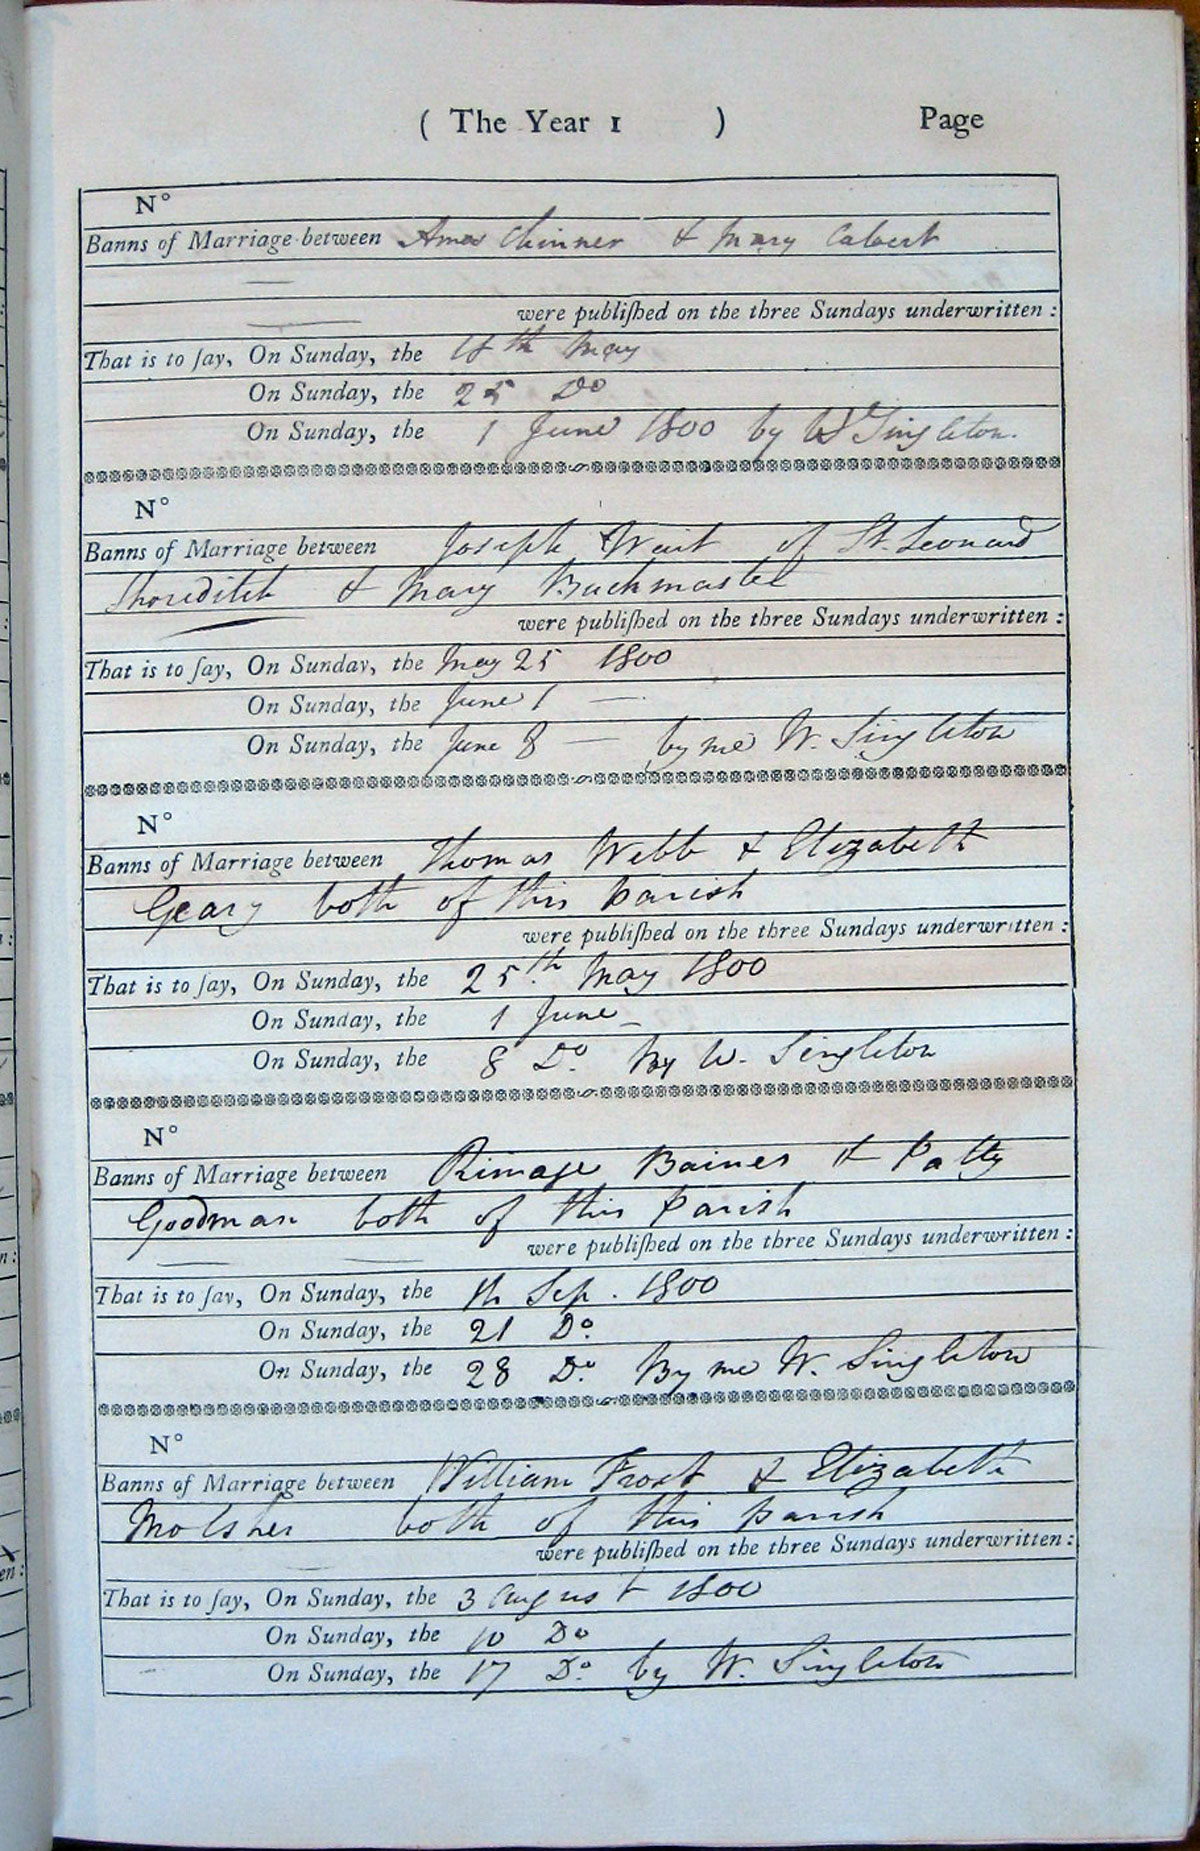 ( The Year 1 ) Page
N°
Banns of Marriage between Amos Chinner & Mary Calvert
were publiſhed on the three Sundays underwritten :
That is to ſay, On Sunday, the 18th May
On Sunday, the 25 Do
On Sunday, the 1 June 1800 by W Singleton.
N°
Banns of Marriage between Joseph Wait of St. Leonard
Shoreditch & Mary Buckmaster
were publiſhed on the three Sundays underwritten :
That is to ſay, On Sunday, the May 25 1800
On Sunday, the June 1 —
On Sunday, the June 8 — by me W. Singleton
N°
Banns of Marriage between Thomas Webb & Elizabeth
Geary both of this Parish
were publiſhed on the three Sundays underwritten :
That is to ſay, On Sunday, the 25th May 1800
On Sunday, the 1 June
On Sunday, the 8 Do. By W. Singleton
N°
Banns of Marriage between Rimage Baines & Patty
Goodman both of this Parish
were publiſhed on the three Sundays underwritten :
That is to ſay, On Sunday, the Sep. 1800
On Sunday, the 21 Do.
On Sunday, the 28 Do. By me W. Singleton
N°
Banns of Marriage between William Frost & Elizabeth
both of this Parish
were publiſhed on the three Sundays underwritten :
That is to ſay, On Sunday, the 3 August 1800
On Sunday, the 10 Do
On Sunday, the 17 Do. by W. Singleton